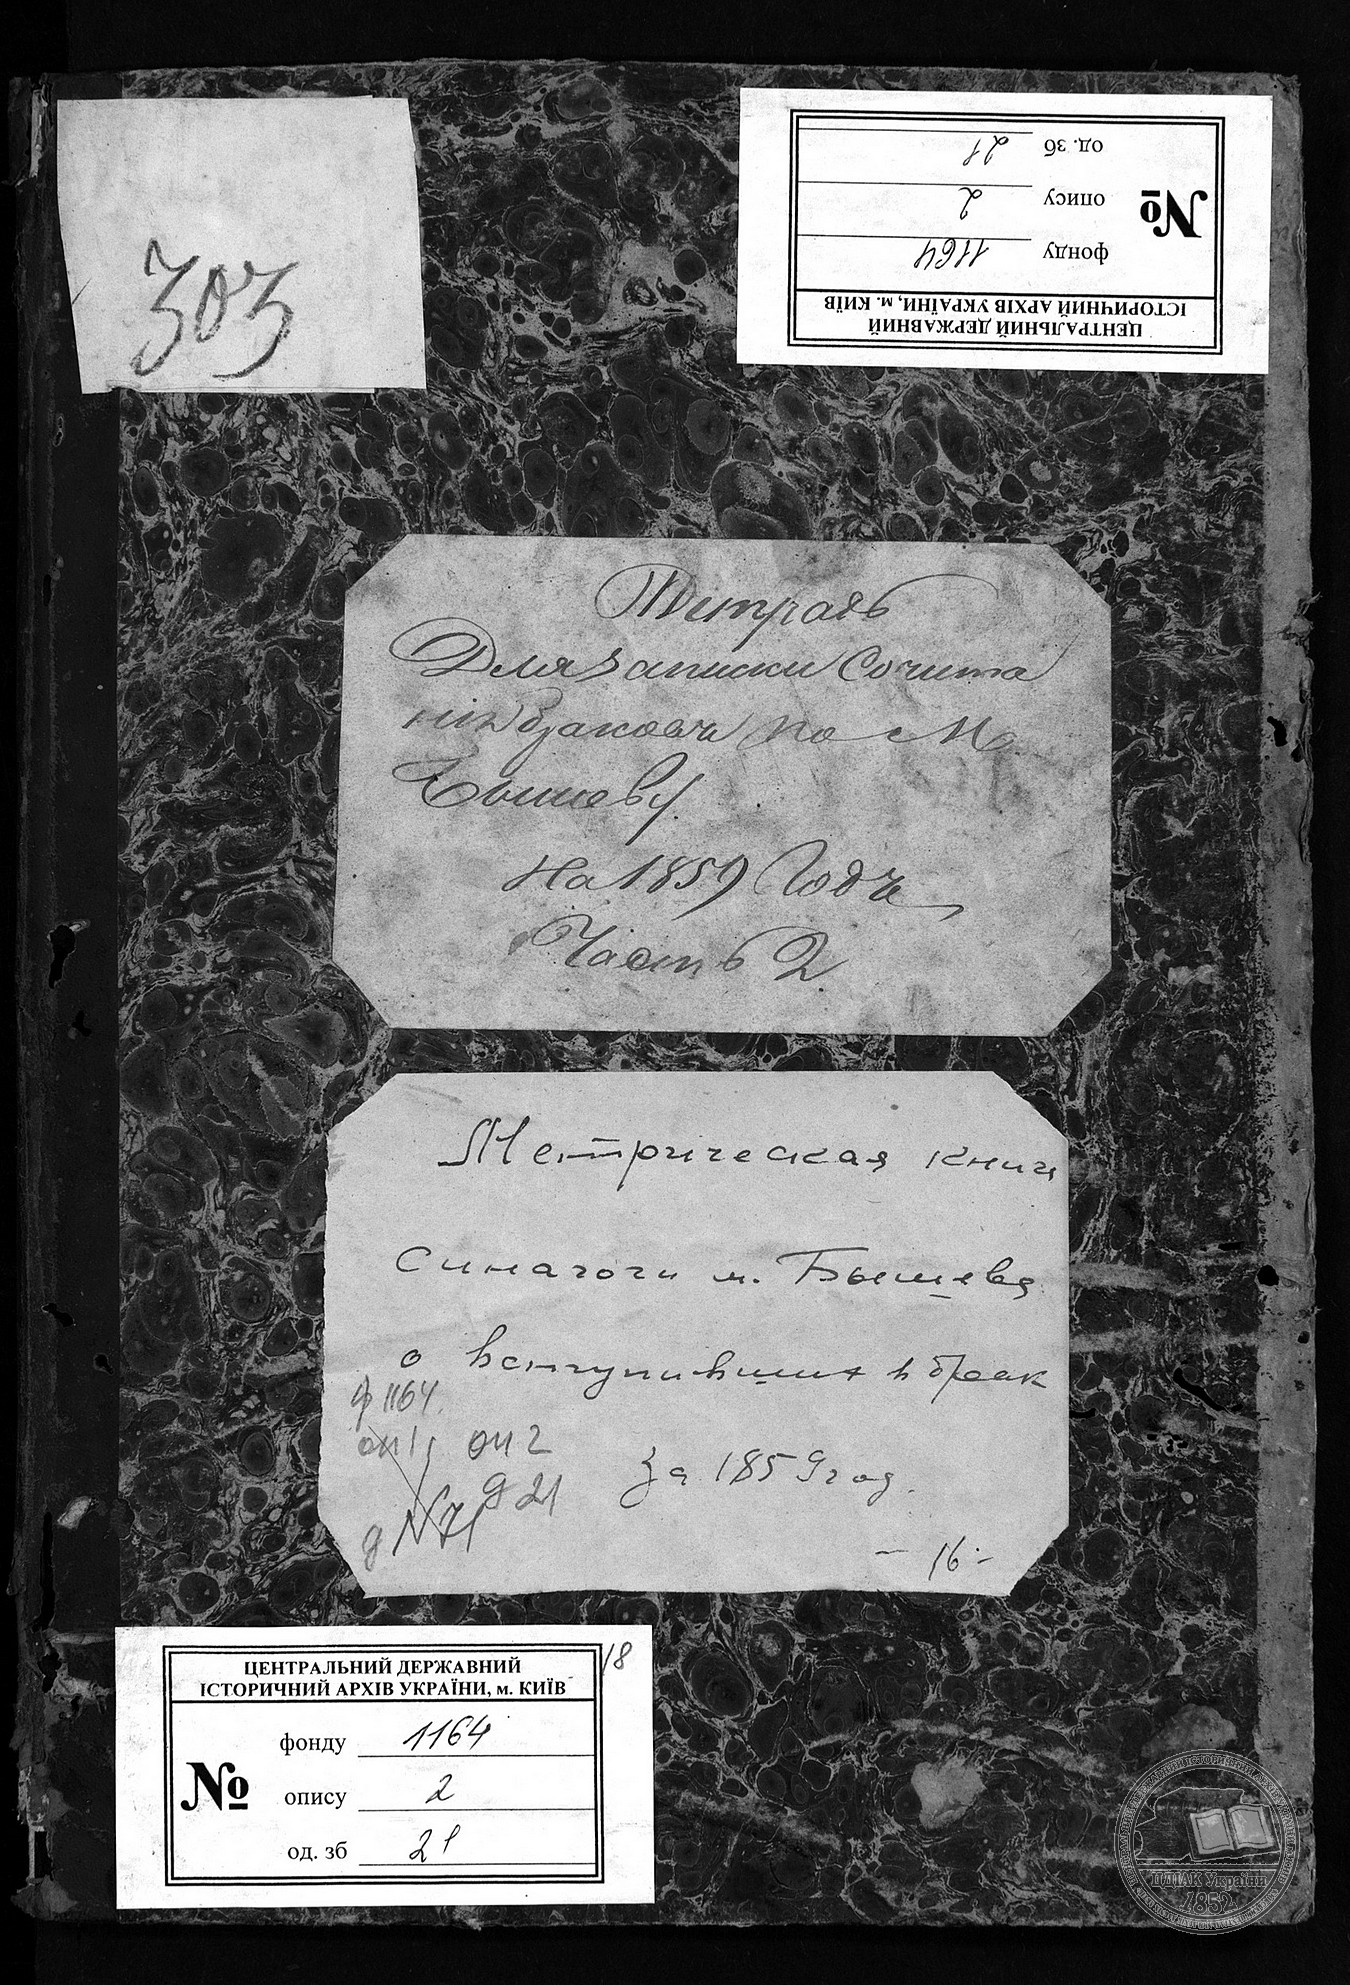 303
ЦЕНТРАЛЬНИЙ ДЕРЖАВНИЙ
ІСТОРИЧНИЙ АРХІВ УКРАЇНИ, м. КИЇВ
№
фонду 1164
опису 2
од. зб 21
Тетрадь
Для записки Сочита
нія браковъ по М.
Бышеву
На 1859 Годъ
Часть 2
Метрическая книга
синагоги м. Бышева
о вступивших в брак
ф 1164.
оп 1 оп 2
за 1859 год.
д 21
д №71
- 16 -
18
ЦЕНТРАЛЬНИЙ ДЕРЖАВНИЙ
ІСТОРИЧНИЙ АРХІВ УКРАЇНИ, м. КИЇВ
№
фонду 1164
опису 2
од. зб 21
ЦДІАК України
1852